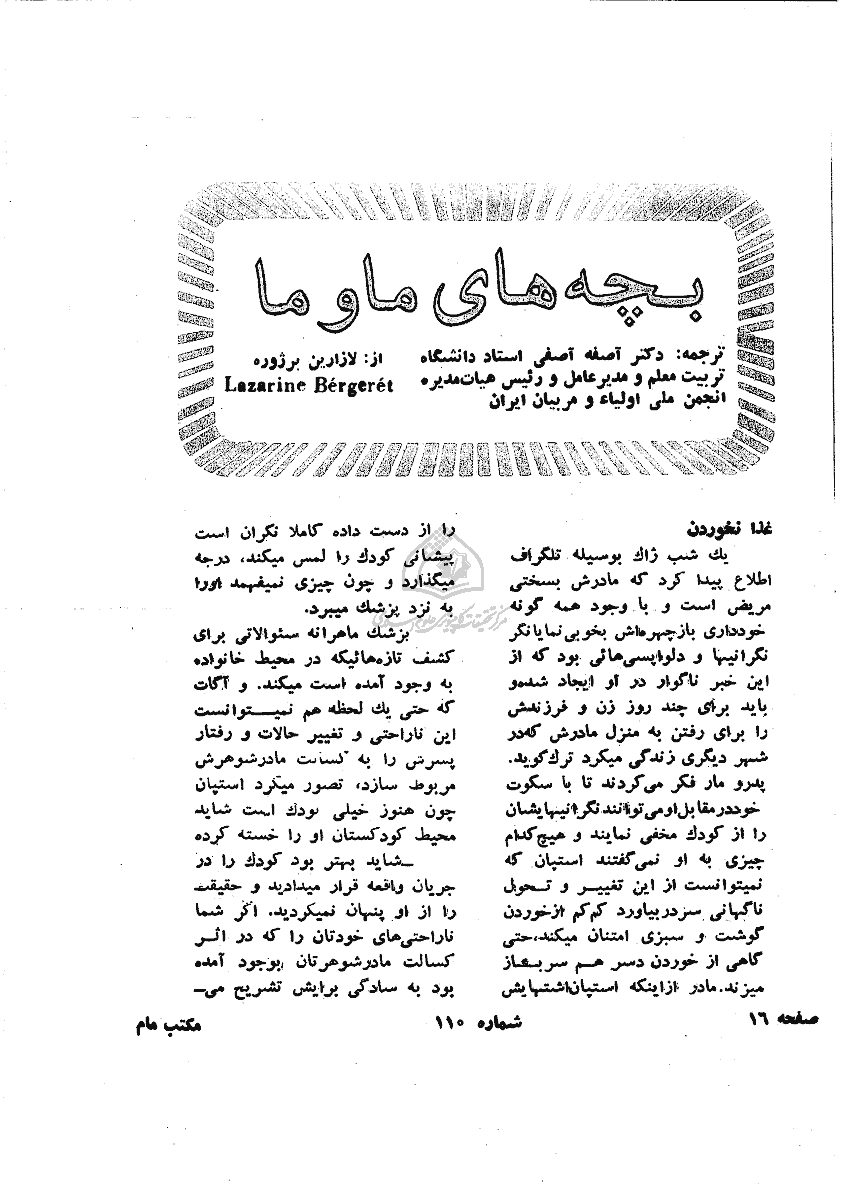 بچه‌های ما و ما
ترجمه: دکتر آصفه آصفی استاد دانشگاه
تربیت معلم و مدیرعامل و رئیس هیات‌مدیره
انجمن ملی اولیاء و مربیان ایران
از: لازارین برژوره
Lazarine Bérgerét
غذا نخوردن
یك شب ژاك بوسیله تلگراف
اطلاع پیدا کرد که مادرش بسختی
مریض است و با وجود همه گونه
خودداری بازچهره‌اش بخوبی‌نمایانگر
نگرانیها و دلواپسی‌هائی بود که از
این خبر ناگوار در او ایجاد شده‌و
باید برای چند روز زن و فرزندش
را برای رفتن به منزل مادرش که‌در
شهر دیگری زندگی میکرد ترك‌گوید.
پدرو مار فکر می‌کردند تا با سکوت
خوددرمقابل‌اومی‌توانندنگرانیهایشان
را از کودك مخفی نمایند و هیچ‌کدام
چیزی به او نمی‌گفتند استپان که
نمیتوانست از این تغییـر و تـحول
ناگهانی سردربیاورد کم‌کم ازخوردن
گوشت و سبزی امتنان میکند،حتی
گاهی از خوردن دسر هـم سربـاز
میزند.مادر ازاینکه استپان‌اشتهایش
را از دست داده کاملا نگران است
پیشانی کودك را لمس میکند، درجه
میگذارد و چون چیزی نمیفهمد اورا
به نزد پزشك میبرد.
پزشك ماهرانه سئوالاتی برای
کشف تازه‌هائیکه در محیط خانواده
به وجود آمده است میکند. و آگات
که حتی یك لحظه هم نمیـتوانست
این ناراحتی و تغییر حالات و رفتار
پسرش را به کسالت مادرشوهرش
مربوط سازد، تصور میکرد استپان
چون هنوز خیلی کودك است شاید
محیط کودکستان او را خسته کرده
ـشاید بهتر بود کودك را در
جریان واقعه قرار میدادید و حقیقت
را از او پنهان نمیکردید. اگر شما
ناراحتی‌های خودتان را که در اثـر
کسالت مادرشوهرتان بوجود آمده
بود به سادگی برایش تشریح می‌ـ
صفحه ۱۶
شماره ۱۱۰
مکتب مام